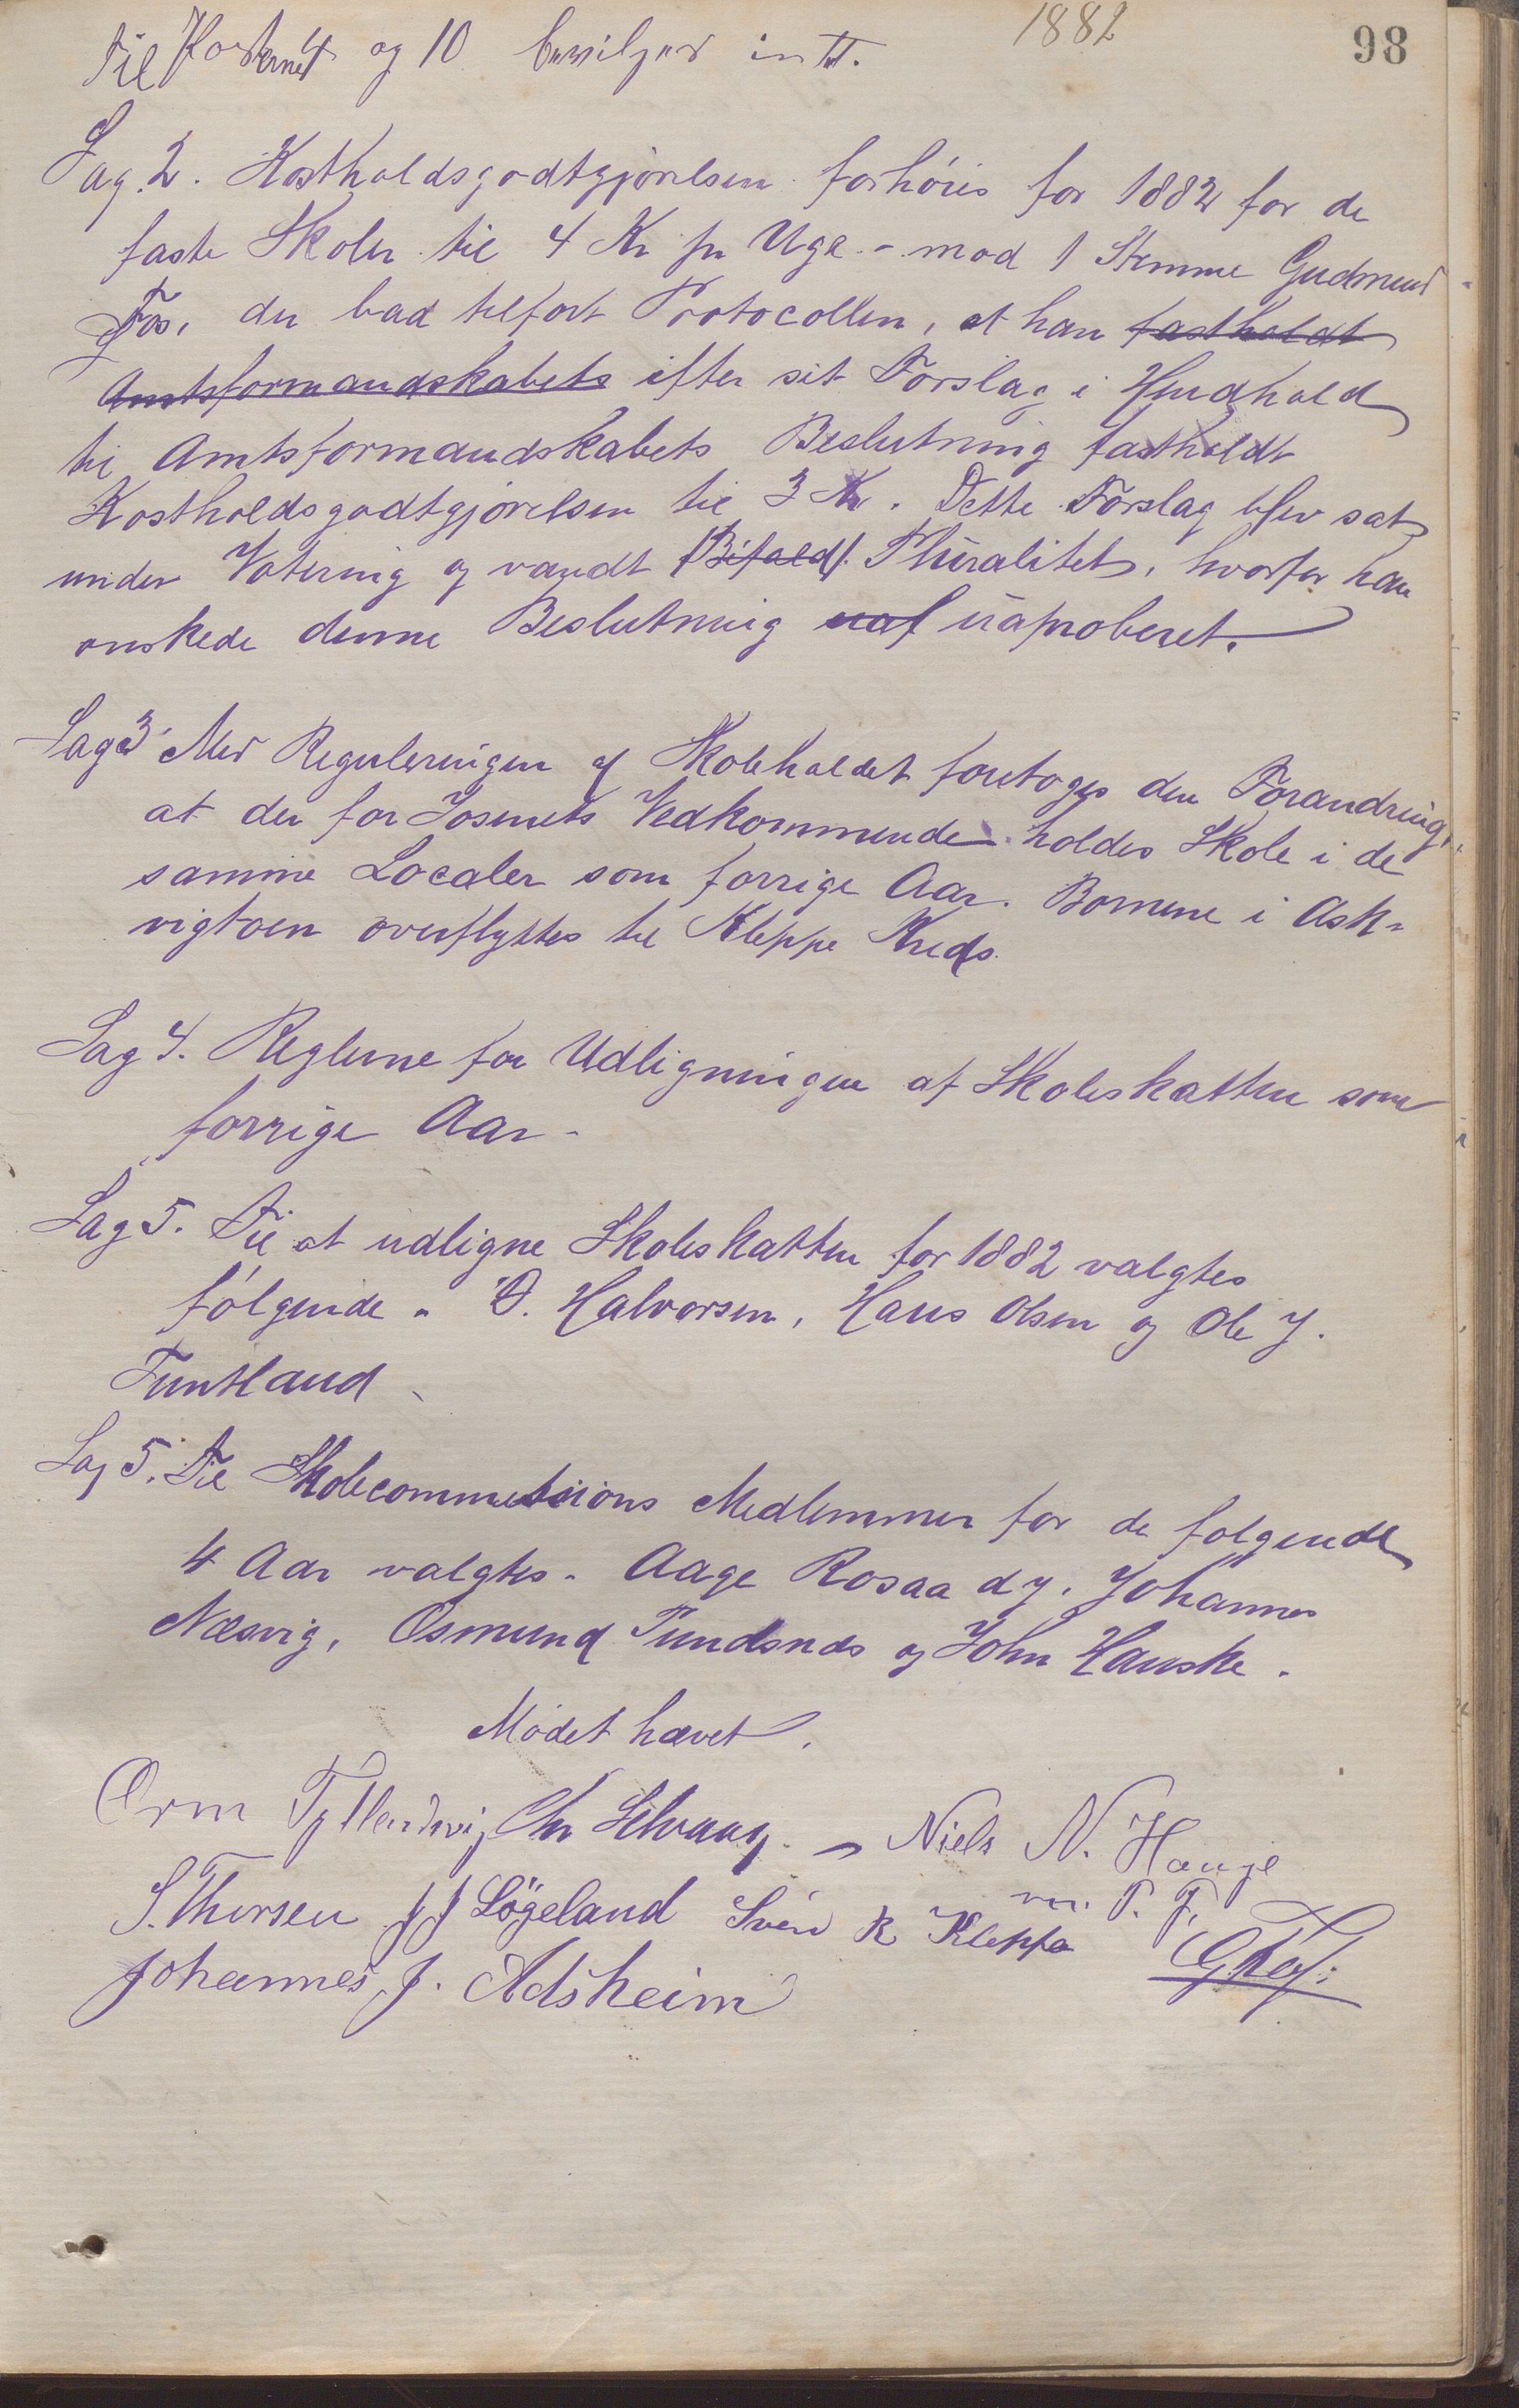 1882
98
Til og 10 bevilges intet.
Sag 2. Kostholdsgodtgjörelsen forhöies for 1882 for de
faste Skoler til 4 Kr pr Uge - mod 1 Stemme Gudmund
Fos, der bad tilfört Protocollen, at han fastholdt
Amtsformandskabets efter sit Forslag i Henhold
til Amtsformandskabets Beslutning fastholdt
Kostholdsgodtgjörelsen til 3 Kr. Dette Forslag blev sat
under Votering og vandt (Bifald). Pluralitet, hvorfor han
önskede denne Beslutning uaf uaproberet.
Sag 3 Med Reguleringen af Skoleholdet foretoges den Forandring,
at der for Josenets Vedkommende holdes Skole i de
samme Localer som forrige Aar. Börnene i Ask-
vigtoen overflyttes til Kleppe Kreds.
Sag 4. Reglerne for Udligningen af Skoleskatten som
forrige Aar -
Sag 5. Til at udligne Skoleskatten for 1882 valgtes
fölgende - O. Halvorsen, Hans Olsen og Ole J.
Funtland
Sag 5. Til Skolecommissions Medlemmer for de fölgende
4 Aar valgtes - Aage Rosaa d.y. Johannes
Næsvig, Osmund Pundsnes og John Hauske.
Mödet hævet.
Orm Chr Selvaag - Niels N. Hauge
m. P. F.
S. Thorsen J J Lögeland Svein R Kleppa
Johannes J. Adsheim